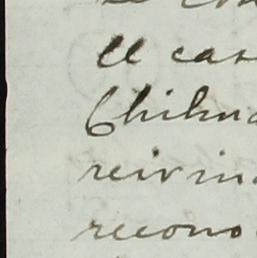 El cas
Chihua
reivin
recono